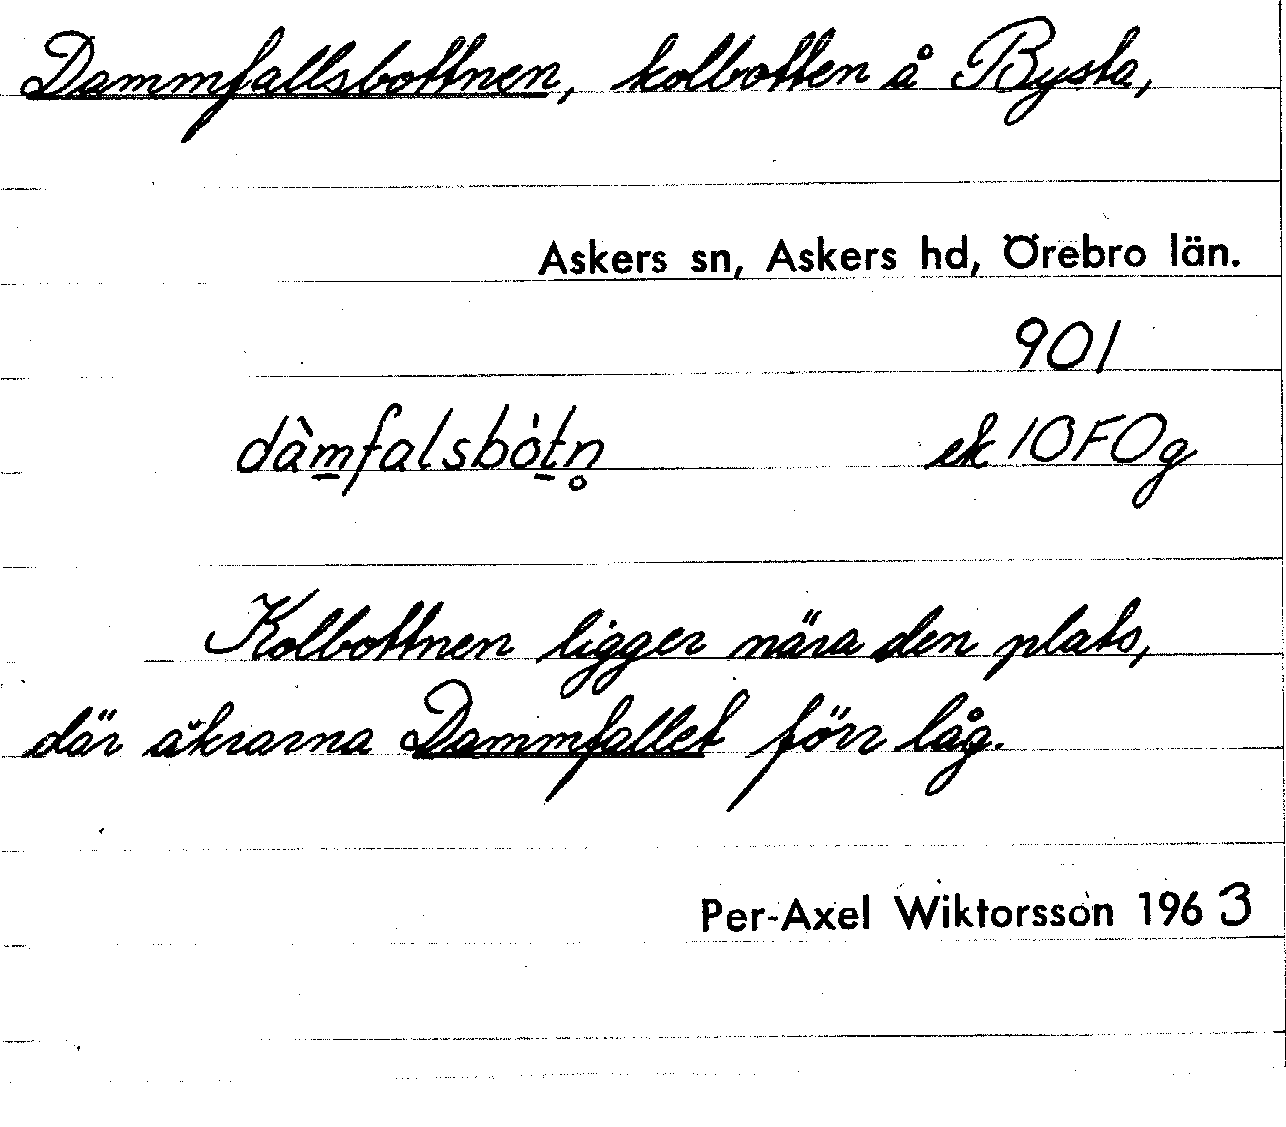 Dammfallsbottnen, kolbotten å Bysta,
Askers sn, Askers hd, Örebro län.
901
dàm̲falsbòt̲n̥ ek 10F0g
Kolbottnen ligger nära den plats,
där åkrarna Dammfallet förr låg.
Per-Axel Wiktorsson 1963